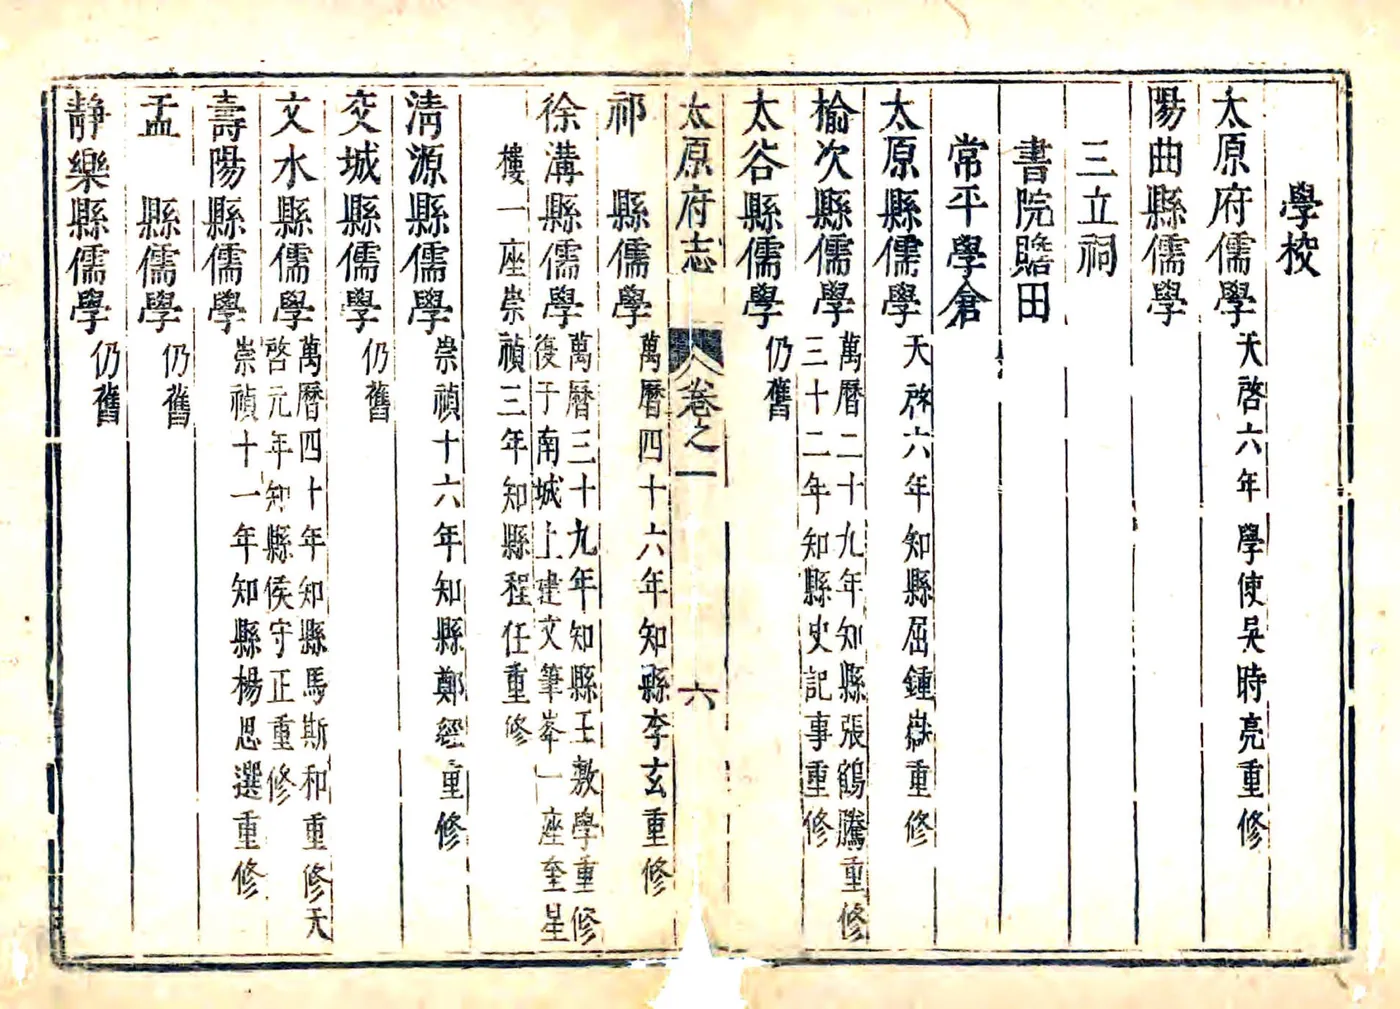 學校
太原府儒學天啓六年學使吳時亮重修
陽曲縣儒學
三立祠
書院贍田
常平學倉
太原縣儒學天啓六年知縣屈鍾嶽重修
榆次縣儒學萬曆二十九年知縣張鶴騰重修
三十二年知縣史記事重修
太谷縣儒學仍舊
太原府志 卷之一 六
祁 縣儒學萬曆四十六年知縣李玄重修
徐溝縣儒學萬曆三十九年知縣王敦學重修
復于南城上建文筆峯一座奎星
樓一座崇禎三年知縣程任重修
清源縣儒學崇禎十六年知縣鄭經重修
交城縣儒學仍舊
文水縣儒學萬曆四十年知縣馬斯和重修天
啓元年知縣侯守正重修
壽陽縣儒學崇禎十一年知縣楊思選重修
孟 縣儒學仍舊
靜樂縣儒學仍舊